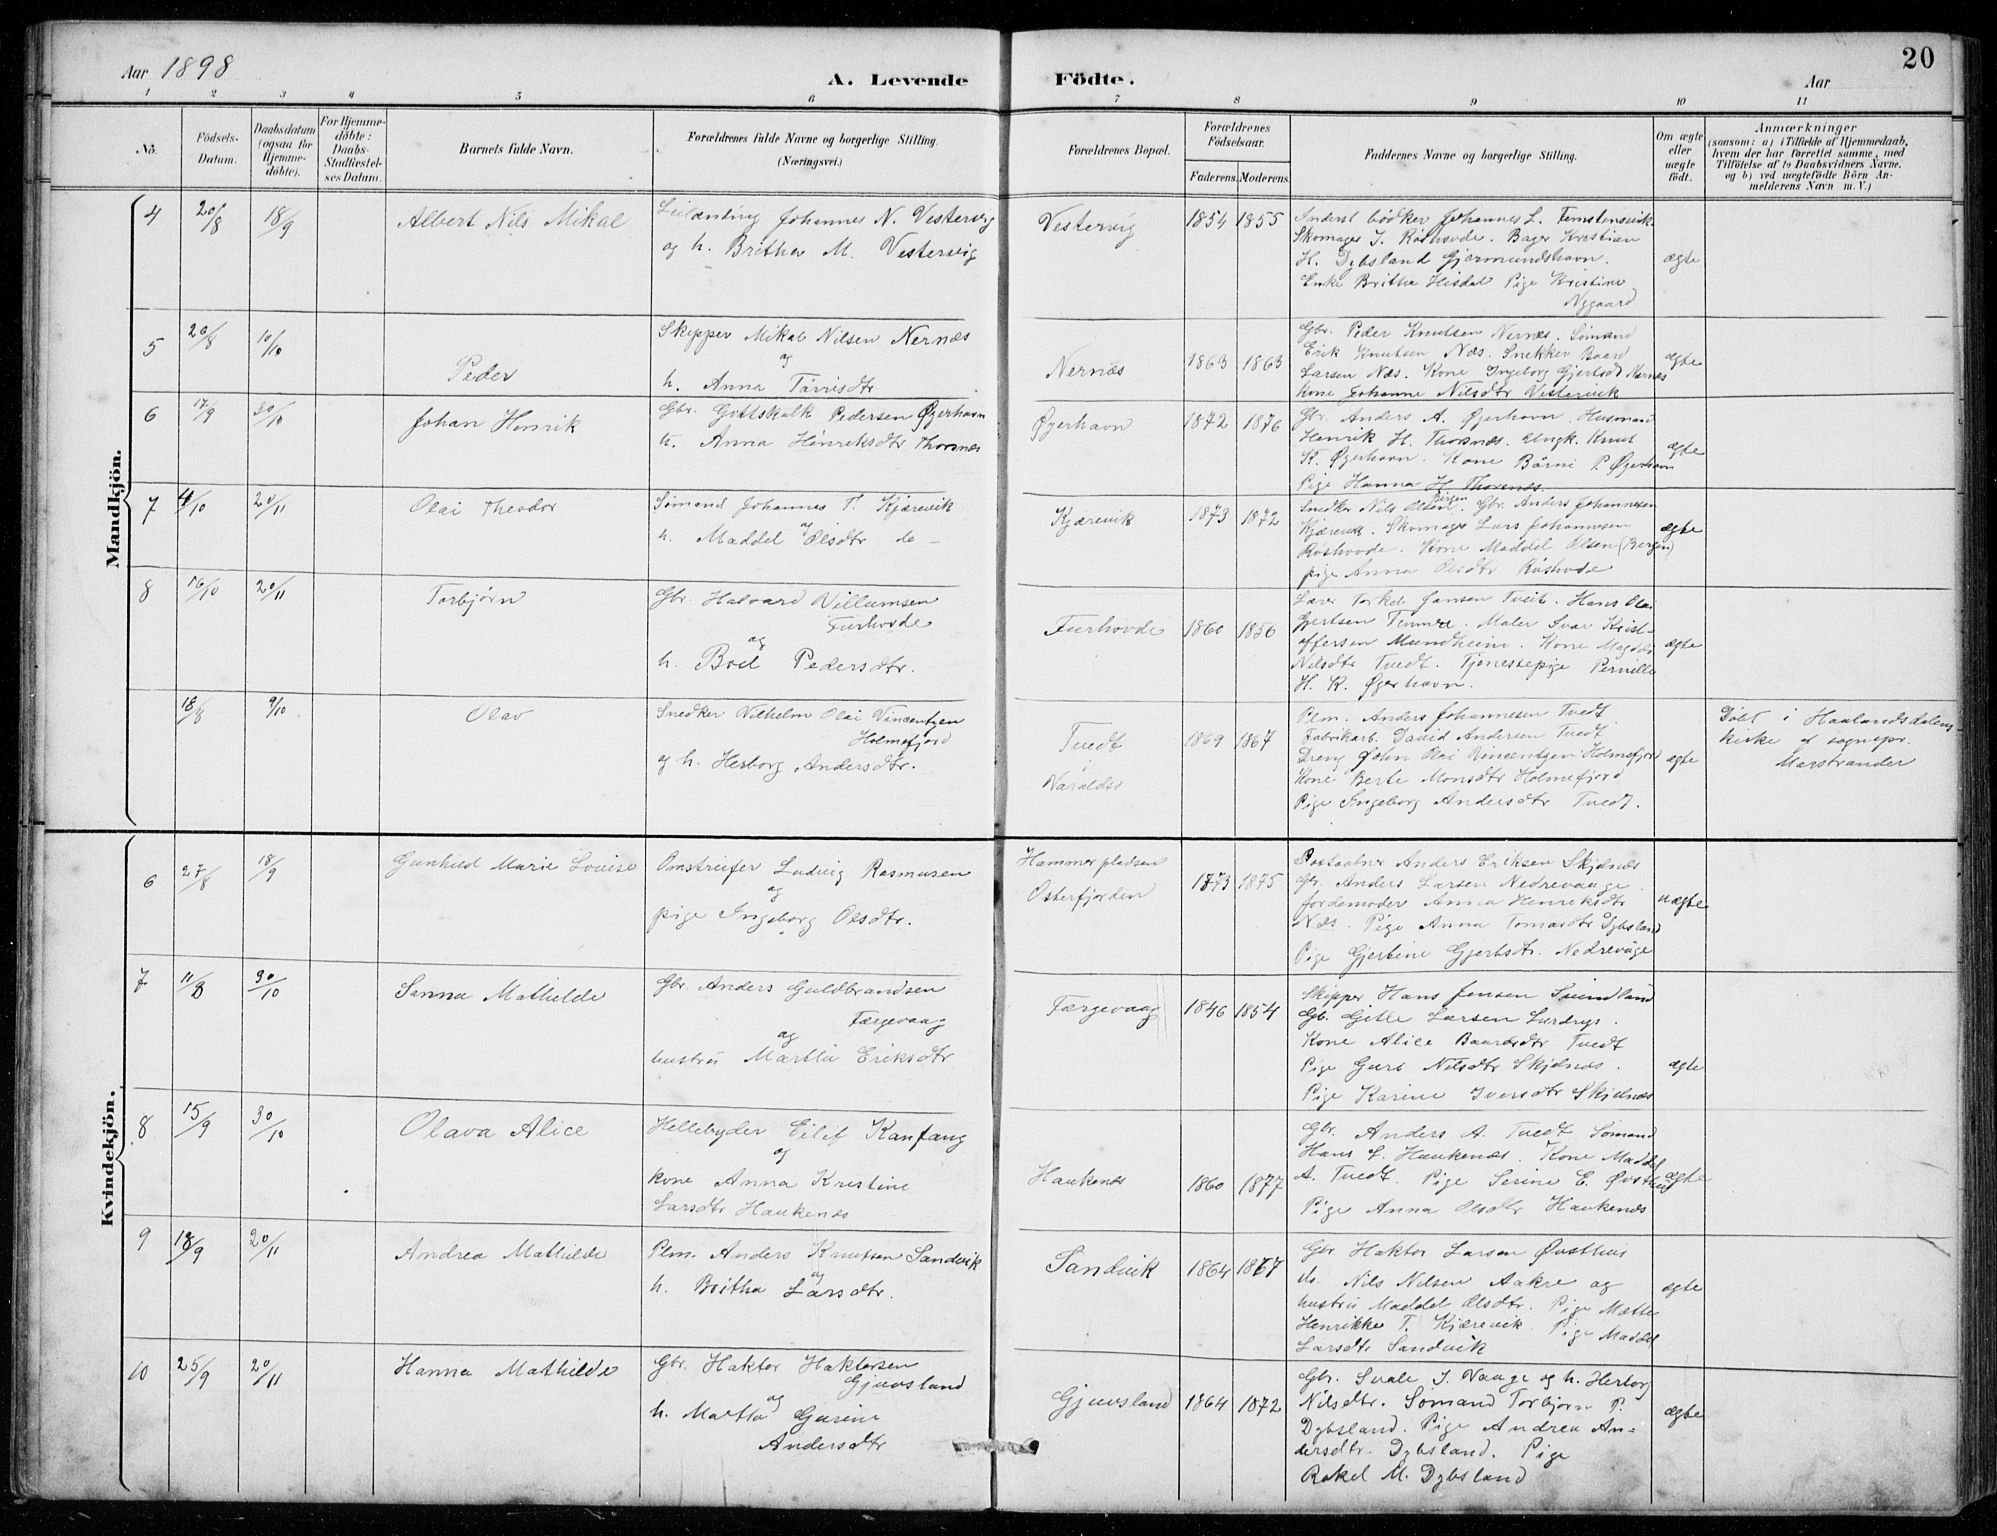 Aar 1898
A. Levende Födte.
Aar
20
1 2 3 4 5 6 7 8 9 10 11
No.
Födsels-Datum.
Daabsdatum (ogsaa for Hjemmedöbte).
For Hjemmedöbte: Daabs-Stadfæstelses Datum.
Barnets fulde Navn.
Forældrenes fulde Navne og borgerlige Stilling. (Næringsvei.)
Forældrenes Bopæl.
Forældrenes Födselsaar.
Faderens. Moderens.
Faddernes Navne og borgerlige Stilling.
Om ægte eller uægte födt.
Anmærkninger
(saasom: a) i Tilfælde af Hjemmedaab, hvem der har forrettet samme, med Tilföielse af to Daabsvidners Navne, og b) ved uægtefödte Börn Anmelderens Navn m. V.)
Mandkjön.
4 20/8 18/9 Albert Nils Mikal
Leilænding Johannes N. Vestervig
og h. Britha M. Vestervig
Vestervig 1854 1855
Johannes L. Femstensvik.
Skomager J. Röshovde. Bager Kristian
H. Dybsland Gjermundshavn.
Enke Britha Hisdal Pige Kristine
Nygaard
ægte
5 20/8 10/10 Peder
Skipper Mikal Nilsen Nernæs
og
h. Anna Tørrisdtr
Nernæs 1863 1863
Gbr. Peder Knutsen Nernæs. Sømand
Erik Knutsen Næs. Snekker Baard
Larsen Næs. Kone Ingeborg Gjertsd Nernæs
Kone Johanne Nilsdtr Vestervik
ægte
6 17/9 30/10 Johan Henrik
Gbr. Gottskalk Pedersen Øgerhavn
h. Anna Henriksdtr Thorsnæs
Øgerhavn 1872 1876
Gbr. Anders A. Øgerhavn Husmand
Henrik H. Thorsnæs. Ungk. Knut
K. Øgerhavn. Kone Börni P. Øgerhavn
Pige Hanna H. Thorsnæs
ægte
7 4/10 20/11 Olai Theodor
Sømand Johannes T. Kjærevik
og
h. Maddel Olsdtr do -
Kjærevik 1873 1872
Snedkr Nils Olsen Bergen. Gbr. Anders Johannesen
Kjærevik. Skomager Lars Johannesen
Röshovde. Kone Maddel Olsen (Bergen)
pige Anna Olsdtr Röshovde
ægte
8 16/10 20/11 Torbjørn
Gbr. Halvard Villumsen
Furhovde
og
h. Boel Pedersdtr.
Furhovde 1860 1856
Lærer Torkel Jansen Tveit. Hans Olai
Gjertsen Maler Ivar Krist-
offersen Mundheim. Kone Magdel
Nilsdtr Tvedt. Tjenestepige Pernille
H. K. Øgerhavn.
ægte
18/8 9/10 Olav
Snedker Vilhelm Olai Vincentzen
Holmefjord
og h. Herborg Andersdtr.
Tvedt
Varaldsö
1869 1867
Plm. Anders Johannesen Tvedt
Fabrikarb. David Andersen Tvedt
Dreng John Olai Vincentzen Holmefjord
Kone Berte Monsdtr Holmefjord
Pige Ingeborg Andersdtr Tvedt.
ægte
Döbt i Haalandsdalens
kirke af sognepr.
Marstrander
Kvindekjön.
6 27/8 18/9 Gunhild Marie Louise
Omstreifer Ludvig Rasmusen
og
pige Ingeborg Olsdtr.
Hammerpladsen
Osterfjorden
1873 1875
Postaabner Anders Eriksen Skjelnæs
Gbr. Anders Larsen Nedrevaage.
Jordemoder Anna Henriksdtr
Næs. Pige Anna Tomasdtr Dybsland
Pige Gjertine Gjertsdtr. Nedrevåge
uægte
7 11/8 30/10 Sanna Mathilde
Gbr. Anders Guldbrandsen
Færgevaag
og
hustru Martha Eriksdtr
Færgevaag 1846 1854
Skipper Hans Jensen Sundland
Gb. Gitle Larsen
Kone Alice Baardsdtr Tvedt
Pige Guro Nilsdtr Skjelnæs.
Pige Karine Iversdtr Skjelnæs
ægte
8 15/9 30/10 Olava Alice
Hellebyder Eilif Kanfang
og
kone Anna Kristine
Larsdtr Haukenæs
Haukenæs 1860 1877
Gbr. Anders A. Tvedt Sømand
Hans L. Haukenæs. Kone Maddel
A. Tvedt. Pige Serine E. Øvsthus
Pige Anna Olsdtr Haukenæs
ægte
9 18/9 20/11 Andrea Mathilde
Plm. Anders Knutsen Sandvik
og
h. Britha Larsdtr.
Sandvik 1864 1867
Gbr Haktor Larsen Øvsthus
do. Nils Nilsen Aakre og
hustru Maddel Olsdtr. Pige Mætte
Henrikke T. Kjærevik. Pige Maddel
Larsdtr Sandvik
ægte
10 25/9 20/11 Hanna Mathilde
Gbr. Haktor Haktorsen
Gjuvsland
og
h. Martha Gurine
Andersdtr
Gjuvsland 1864 1872
Gbr. Svale J. Vaage og h. Herborg
Nilsdtr. Sømand Torbjørn P.
Dybsland. Pige Andrea An-
dersdtr. Dybsland. Pige
Rakel M. Dybsland
ægte